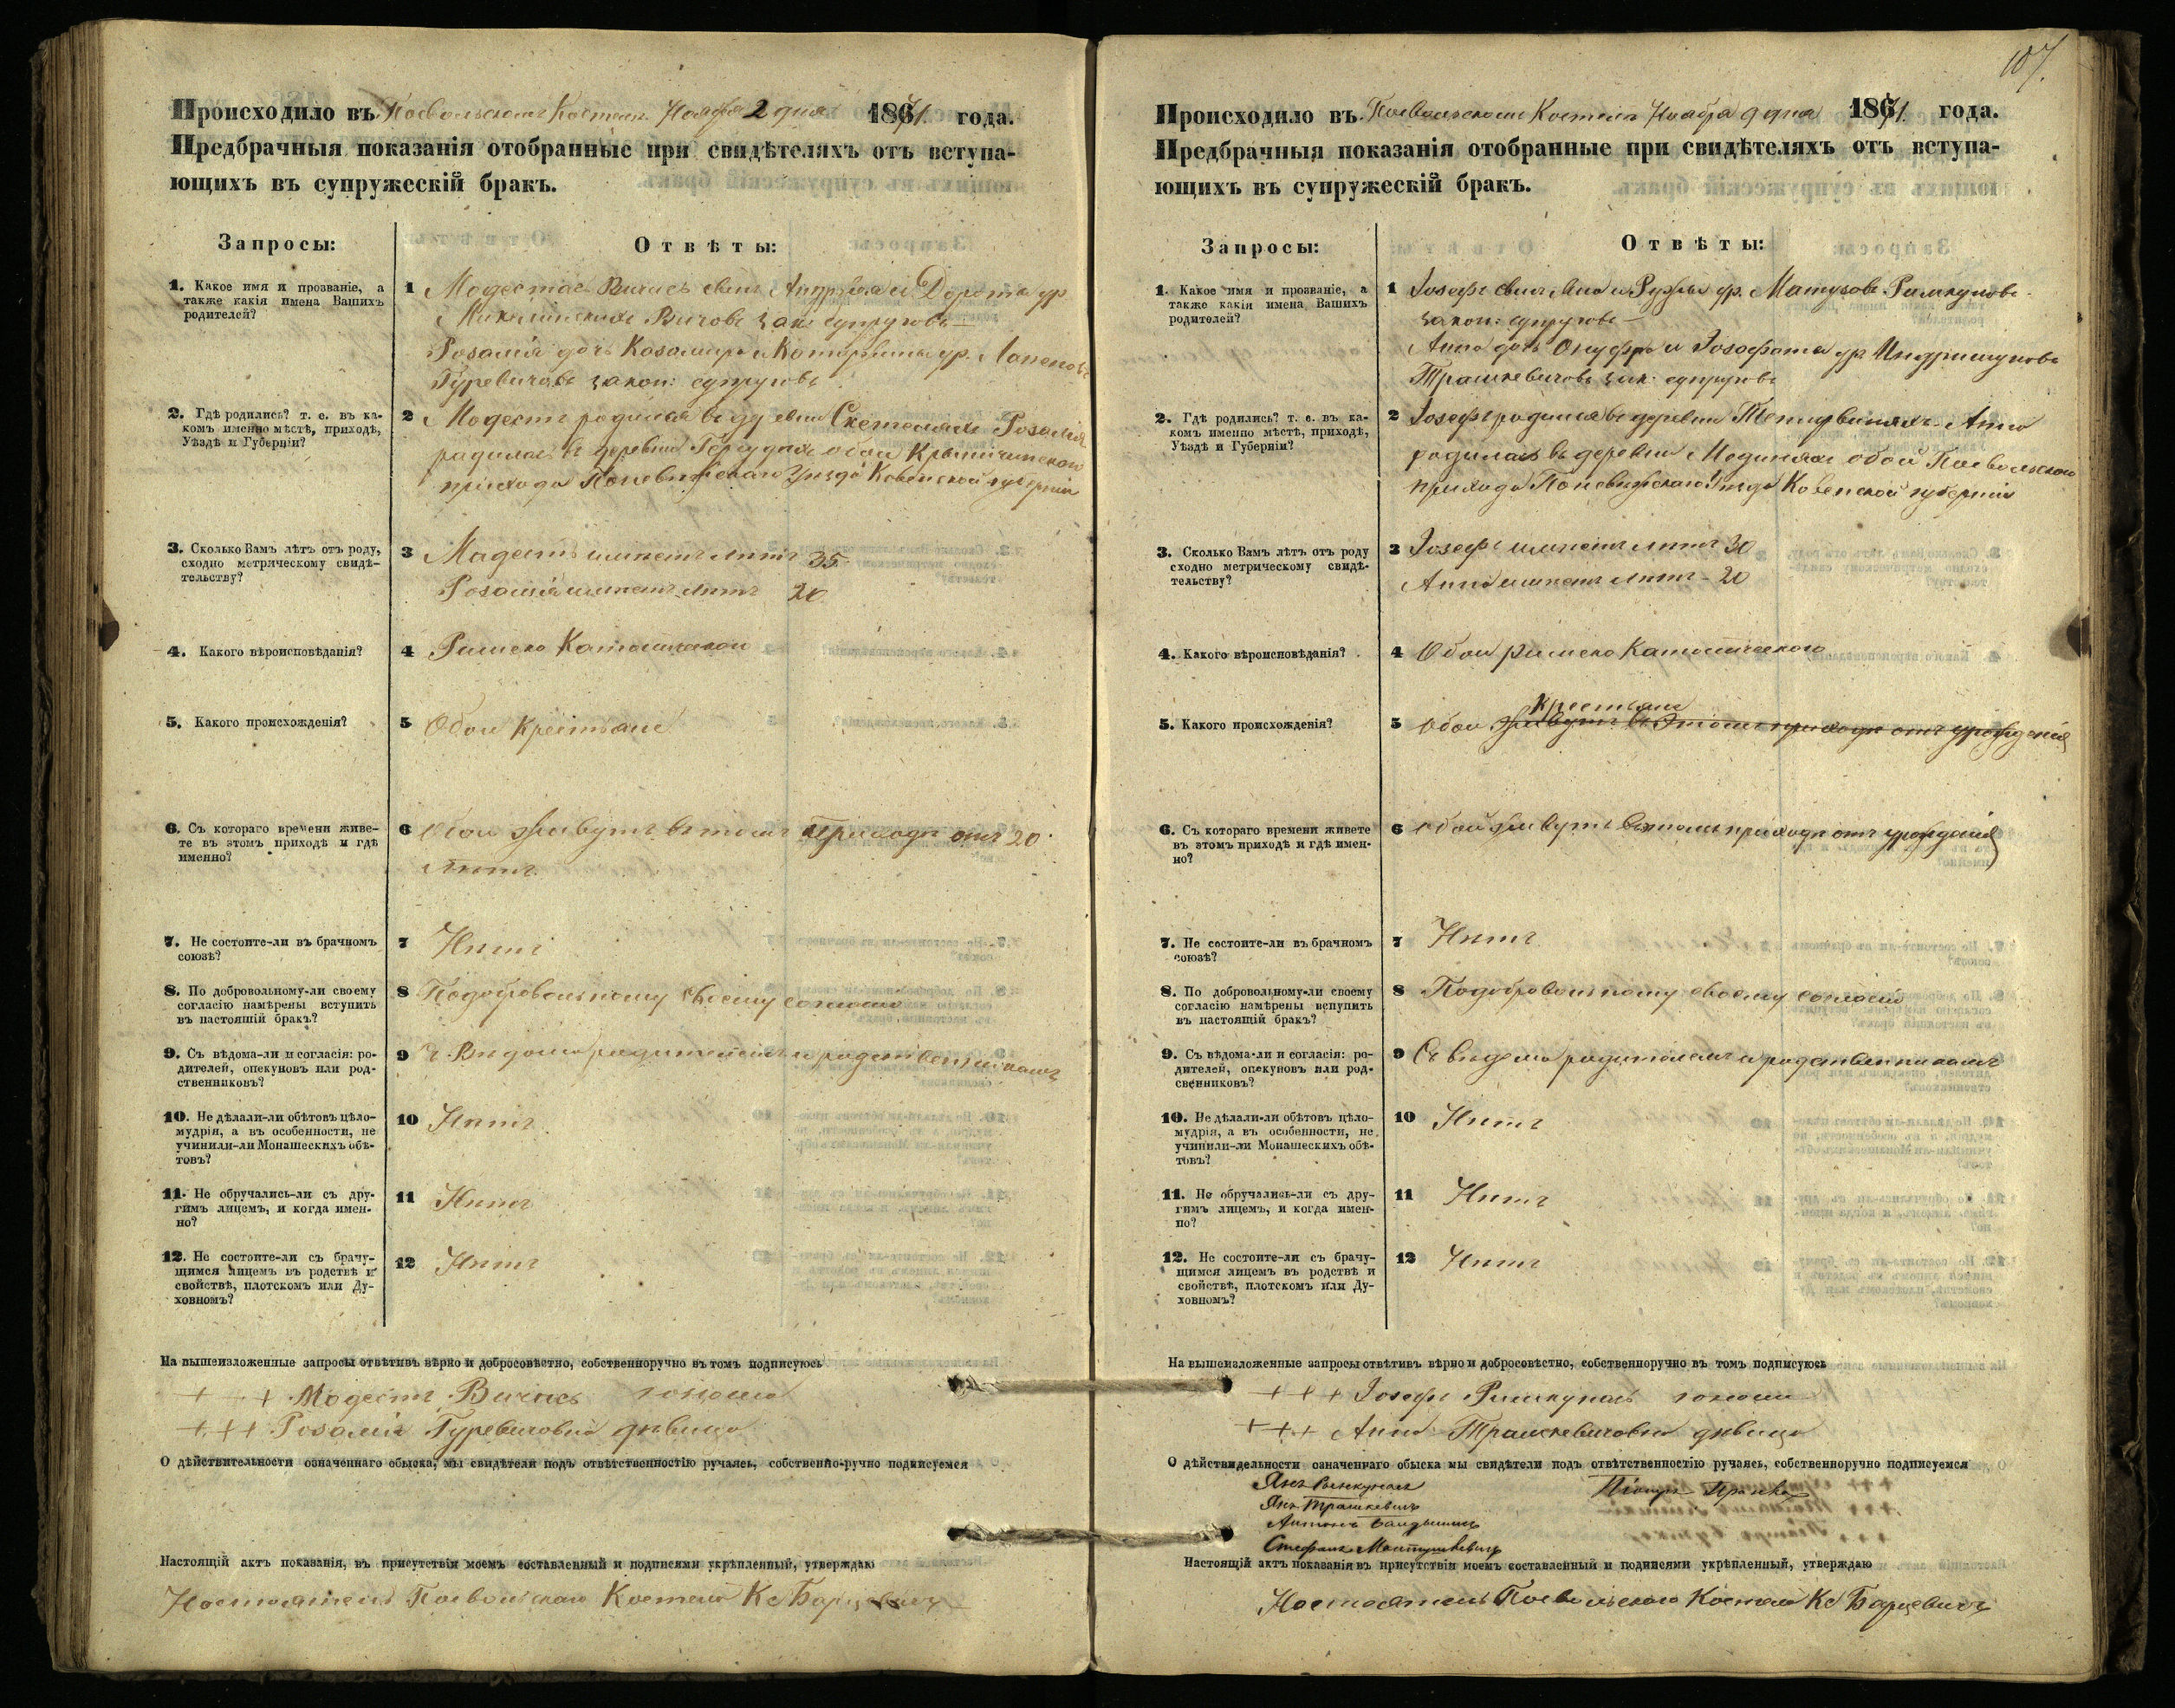 Происходило въ Поевольскомъ Костелѣ Ноября 2 дня 1871 года.
Предбрачныя показанія отобранные при свидѣтеляхъ отъ вступа-
ющихъ въ супружескій бракъ.
Запросы:
Отвѣты:
1. Какое имя и прозваніе, а
также какія имена Вашихъ
родителей?
1 Модестас Вичасъ сынъ и Дорота ур
Вичовъ зак: супруговъ —
Розалія дочь Казимира и Катарзины ур.
Гуревичовъ закон: супруговъ
2. Гдѣ родились? т. е. въ ка-
комъ именно мѣстѣ, приходѣ,
Уѣздѣ и Губерніи?
2 Модестъ родился въ деревни Розалія
родилась въ деревни обои
прихода Поневѣжскаго Уѣзда Ковенской губерніи
3. Сколько Вамъ лѣтъ отъ роду,
сходно метрическому свидѣ-
тельству?
3 Мадестъ имѣетъ лѣтъ 35
Розалія имѣетъ лѣтъ 20
4. Какого вѣроисповѣданія?
4 Римско Католической
5. Какого происхожденія?
5 Обои Крестьане
6. Съ котораго времени живе-
те въ этомъ приходѣ и гдѣ
именно?
6 Обои живутъ въ томъ Приходѣ отъ 20
лѣтъ
7. Не состоите-ли въ брачномъ
союзѣ?
7 Нѣтъ
8. По добровольному-ли своему
согласію намѣрены вступить
въ настоящій бракъ?
8 Подобровольному своему согласію
9. Съ вѣдома-ли и согласія: ро-
дителей, опекуновъ или род-
ственниковъ?
9 родителемъ и родственникамъ
10. Не дѣлали-ли обѣтовъ цѣло-
мудрія, а въ особенности, не
учинили-ли Монашескихъ обѣ-
товъ?
10 Нѣтъ
11. Не обручались-ли съ дру-
гимъ лицемъ, и когда имен-
но?
11 Нѣтъ
12. Не состоите-ли съ брачу-
щимся лицемъ въ родствѣ и
свойствѣ, плотскомъ или Ду-
ховномъ?
12 Нѣтъ
На вышеизложенные запросы отвѣтивъ вѣрно и добросовѣстно, собственноручно въ томъ подписуюсь
+ + Модестъ Вичасъ юноша
+ + + Розалія Гуревичовна дѣвица
О дѣйствительности означеннаго обыска, мы свидѣтели подъ отвѣтственностію ручаясь, собственно-ручно подписуемся
Настоящій актъ показанія, въ присутствіи моемъ составленный и подписями укрѣпленный, утверждаю
Настоятель Поевольскаго Костела Кс Барцевичъ
107.
Происходило въ Поевольскомъ Костелѣ Ноября 9 дня 1871 года.
Предбрачныя показанія отобранные при свидѣтеляхъ отъ вступа-
ющихъ въ супружескій бракъ.
Запросы:
Отвѣты:
1. Какое имя и прозваніе, а
также какія имена Вашихъ
родителей?
1 Іозефъ сынъ ур. Римкуновъ
закон: супруговъ —
Анна дочь Онуфра и Іозафата ур
Трашкевичовъ зак: супруговъ
2. Гдѣ родились? т. е. въ ка-
комъ именно мѣстѣ, приходѣ,
Уѣздѣ и Губерніи?
2 Іозефъ родился въ деревни Анна
родилась въ деревни обои Поевольскаго
прихода Поневѣжскаго Уѣзда Ковенской губерніи
3. Сколько Вамъ лѣтъ отъ роду
сходно метрическому свидѣ-
тельству?
3 Іозефъ имѣетъ лѣтъ 30
Анна имѣетъ лѣтъ - 20
4. Какого вѣроисповѣданія?
4 Обои римско Католическаго
5. Какого происхожденія?
Крестьане
5 Обои живутъ въ этомъ приходѣ отъ урожденія
6. Съ котораго времени живете
въ этомъ приходѣ и гдѣ имен-
но?
6 обои живутъ въ этомъ приходѣ отъ урожденія
7. Не состоите-ли въ брачномъ
союзѣ?
7 Нѣтъ
8. По добровольному-ли своему
согласію намѣрены вспупить
въ настоящій бракъ?
8 Подобровольному своему согласію
9. Съ вѣдома-ли и согласія: ро-
дителей, опекуновъ или род-
свенниковъ?
9 Съ вѣдома родителемъ и родственникамъ
10. Не дѣлали-ли обѣтовъ цѣло-
мудрія, а въ особенности, не
учинили-ли Монашескихъ обѣ-
товъ?
10 Нѣтъ
11. Не обручались-ли съ дру-
гимъ лицемъ, и когда имен-
но?
11 Нѣтъ
12. Не состоите-ли съ брачу-
щимся лицемъ въ родствѣ и
свойствѣ, плотскомъ или Ду-
ховномъ?
12 Нѣтъ
На вышеизложенные запросы отвѣтивъ вѣрно и добросовѣстно, собственноручно въ томъ подписуюсь
+ + + Іозефъ Римкунасъ юноша
+ + + Анна Трашкевичовна дѣвица
О дѣйствидельности означеннаго обыска мы свидѣтели подъ отвѣтственностію ручаясь, собственноручно подписуемся
Янъ Рымкунасъ
Янъ Трашкевичъ
Антонъ
Стефанъ Матушкевичъ
Настоящій актъ показанія въ присутствіи моемъ составленный и подписями укрѣпленный, утверждаю
Настоятель Поевольскаго Костела Кс Барцевичъ